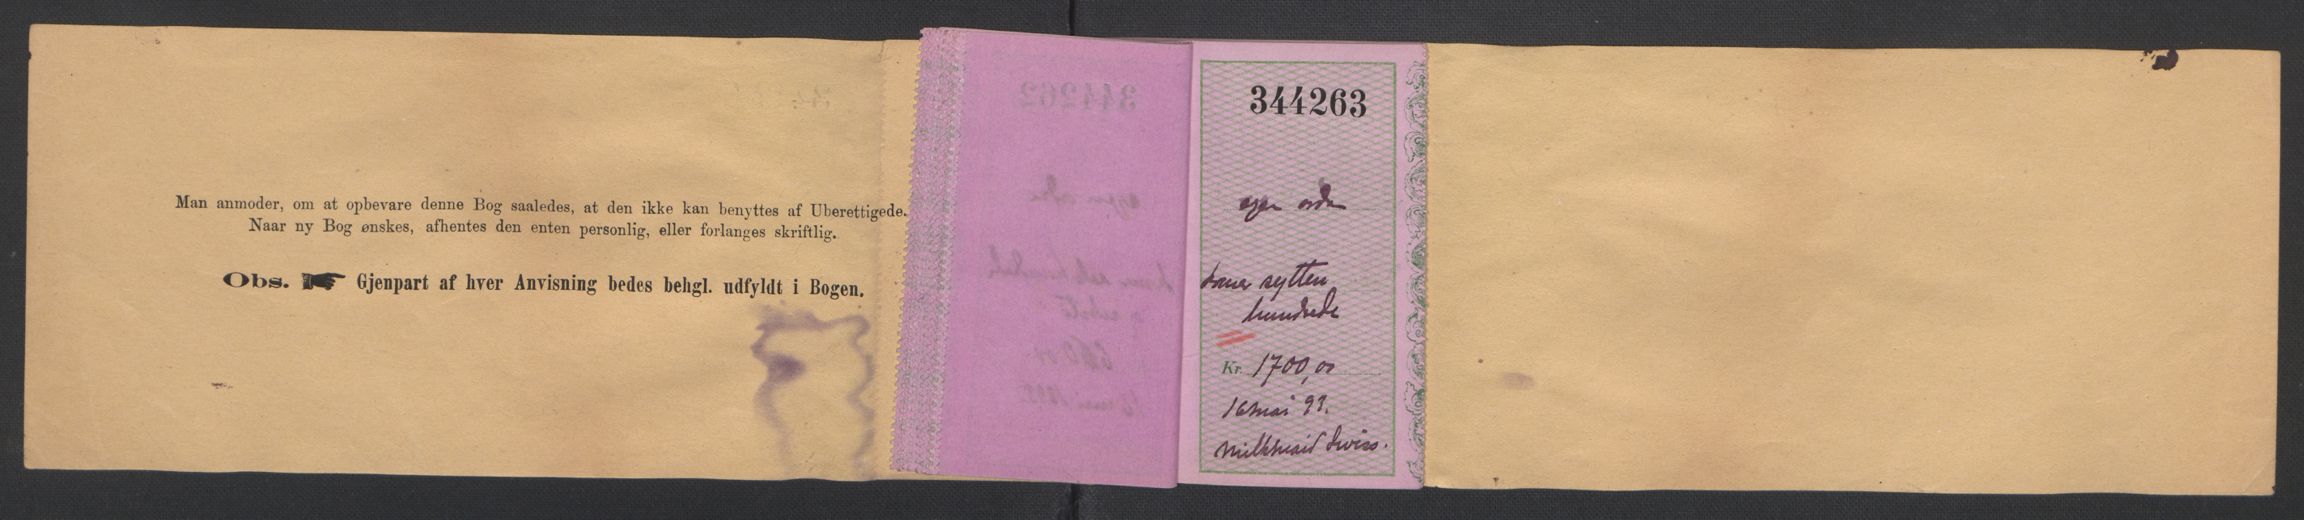 Man anmoder, om at opbevare denne Bog saaledes, at den ikke kan benyttes af Uberettigede.
Naar ny Bog ønskes, afhentes den enten personlig, eller forlanges skriftlig.
Obs. Gjenpart af hver Anvisning bedes behgl. udfyldt i Bogen.
344262
344263
egen ordre
sytten
hundrede
Kr. 1700,00
16 mai 93.
Milkmaid Swiss.